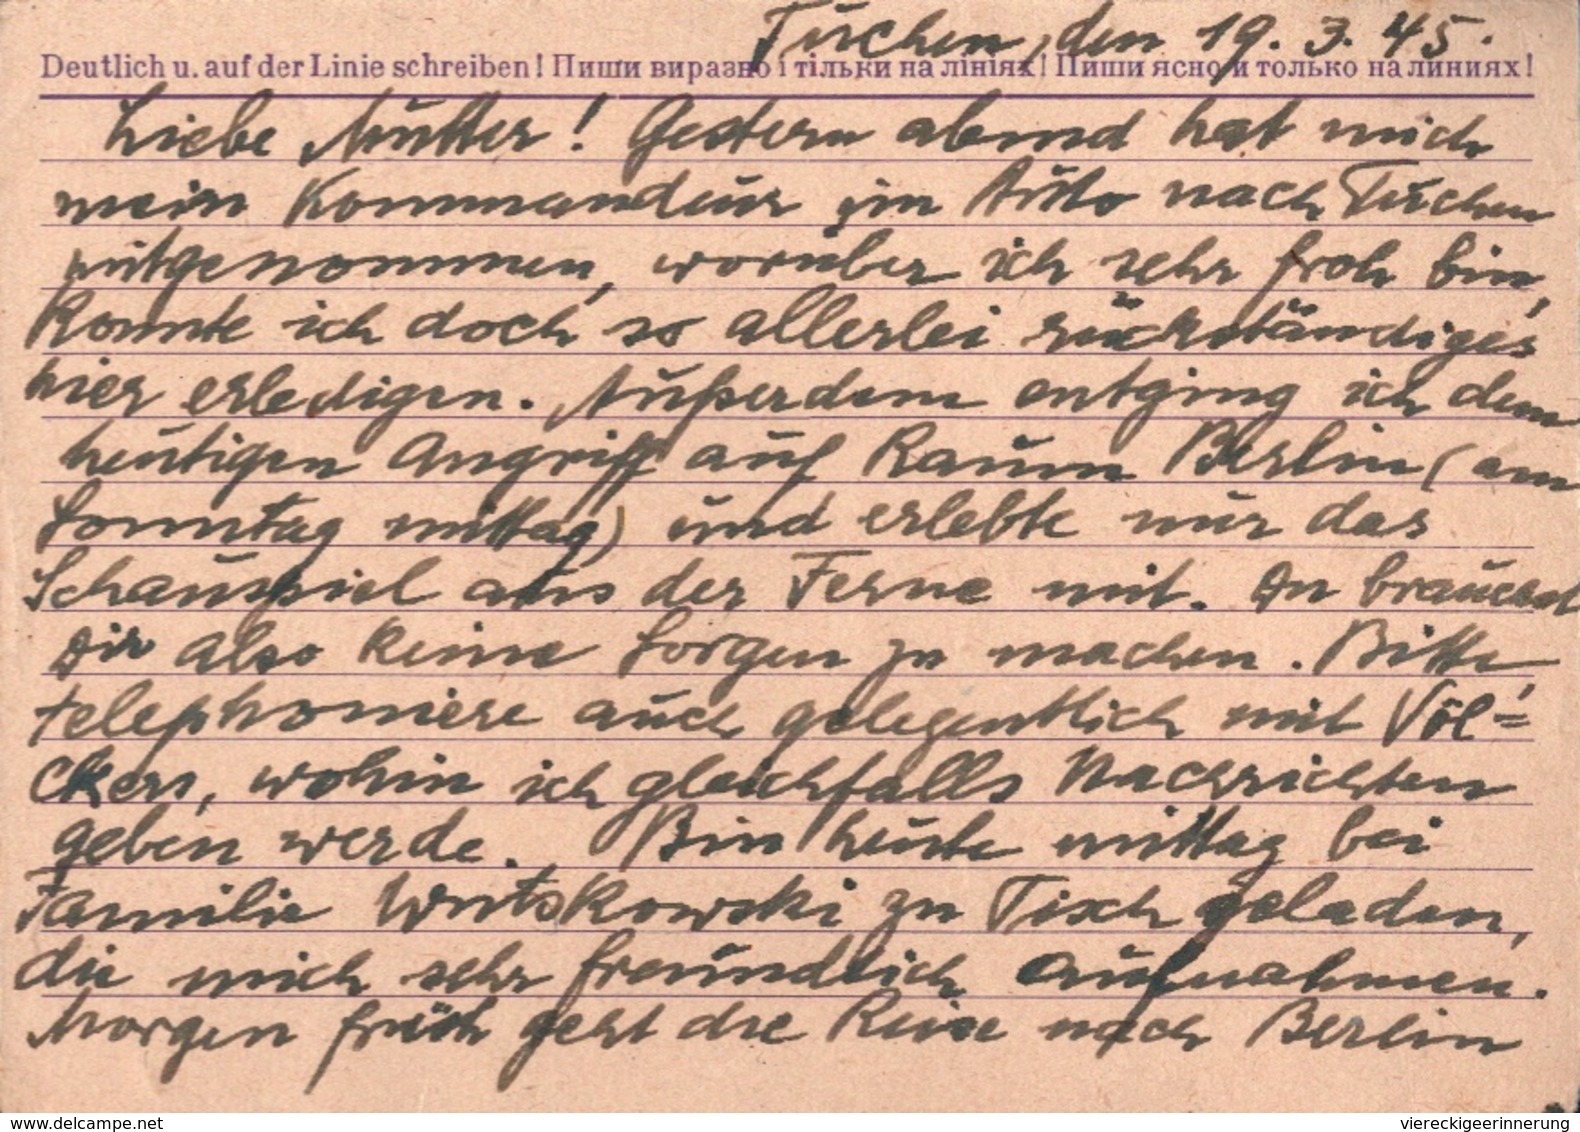 Tuchen, den 19. 3. 45.
Deutlich u. auf der Linie schreiben! Пиши виразно і тільки на лініях! Пиши ясно и только на линиях!
Liebe Mutter! Gestern abend hat mich
mein Kommandeur im Auto nach Tuchen
mitgenommen, worüber ich sehr froh bin,
konnte ich doch so allerlei rückständiges
hier erledigen. Außerdem entging ich dem
heutigen Angriff auf Raum Berlin (am
Sonntag mittag) und erlebte nur das
Schauspiel aus der Ferne mit. Du brauchst
Dir also keine Sorgen zu machen. Bitte,
telephoniere auch gelegentlich mit Völ=
ckers, wohin ich gleichfalls Nachrichten
geben werde. Bin heute mittag bei
Familie Wutskowski zu Tisch geladen,
die mich sehr freundlich aufnahmen.
Morgen früh geht die Reise nach Berlin
delcampe.net
viereckigeerinnerung